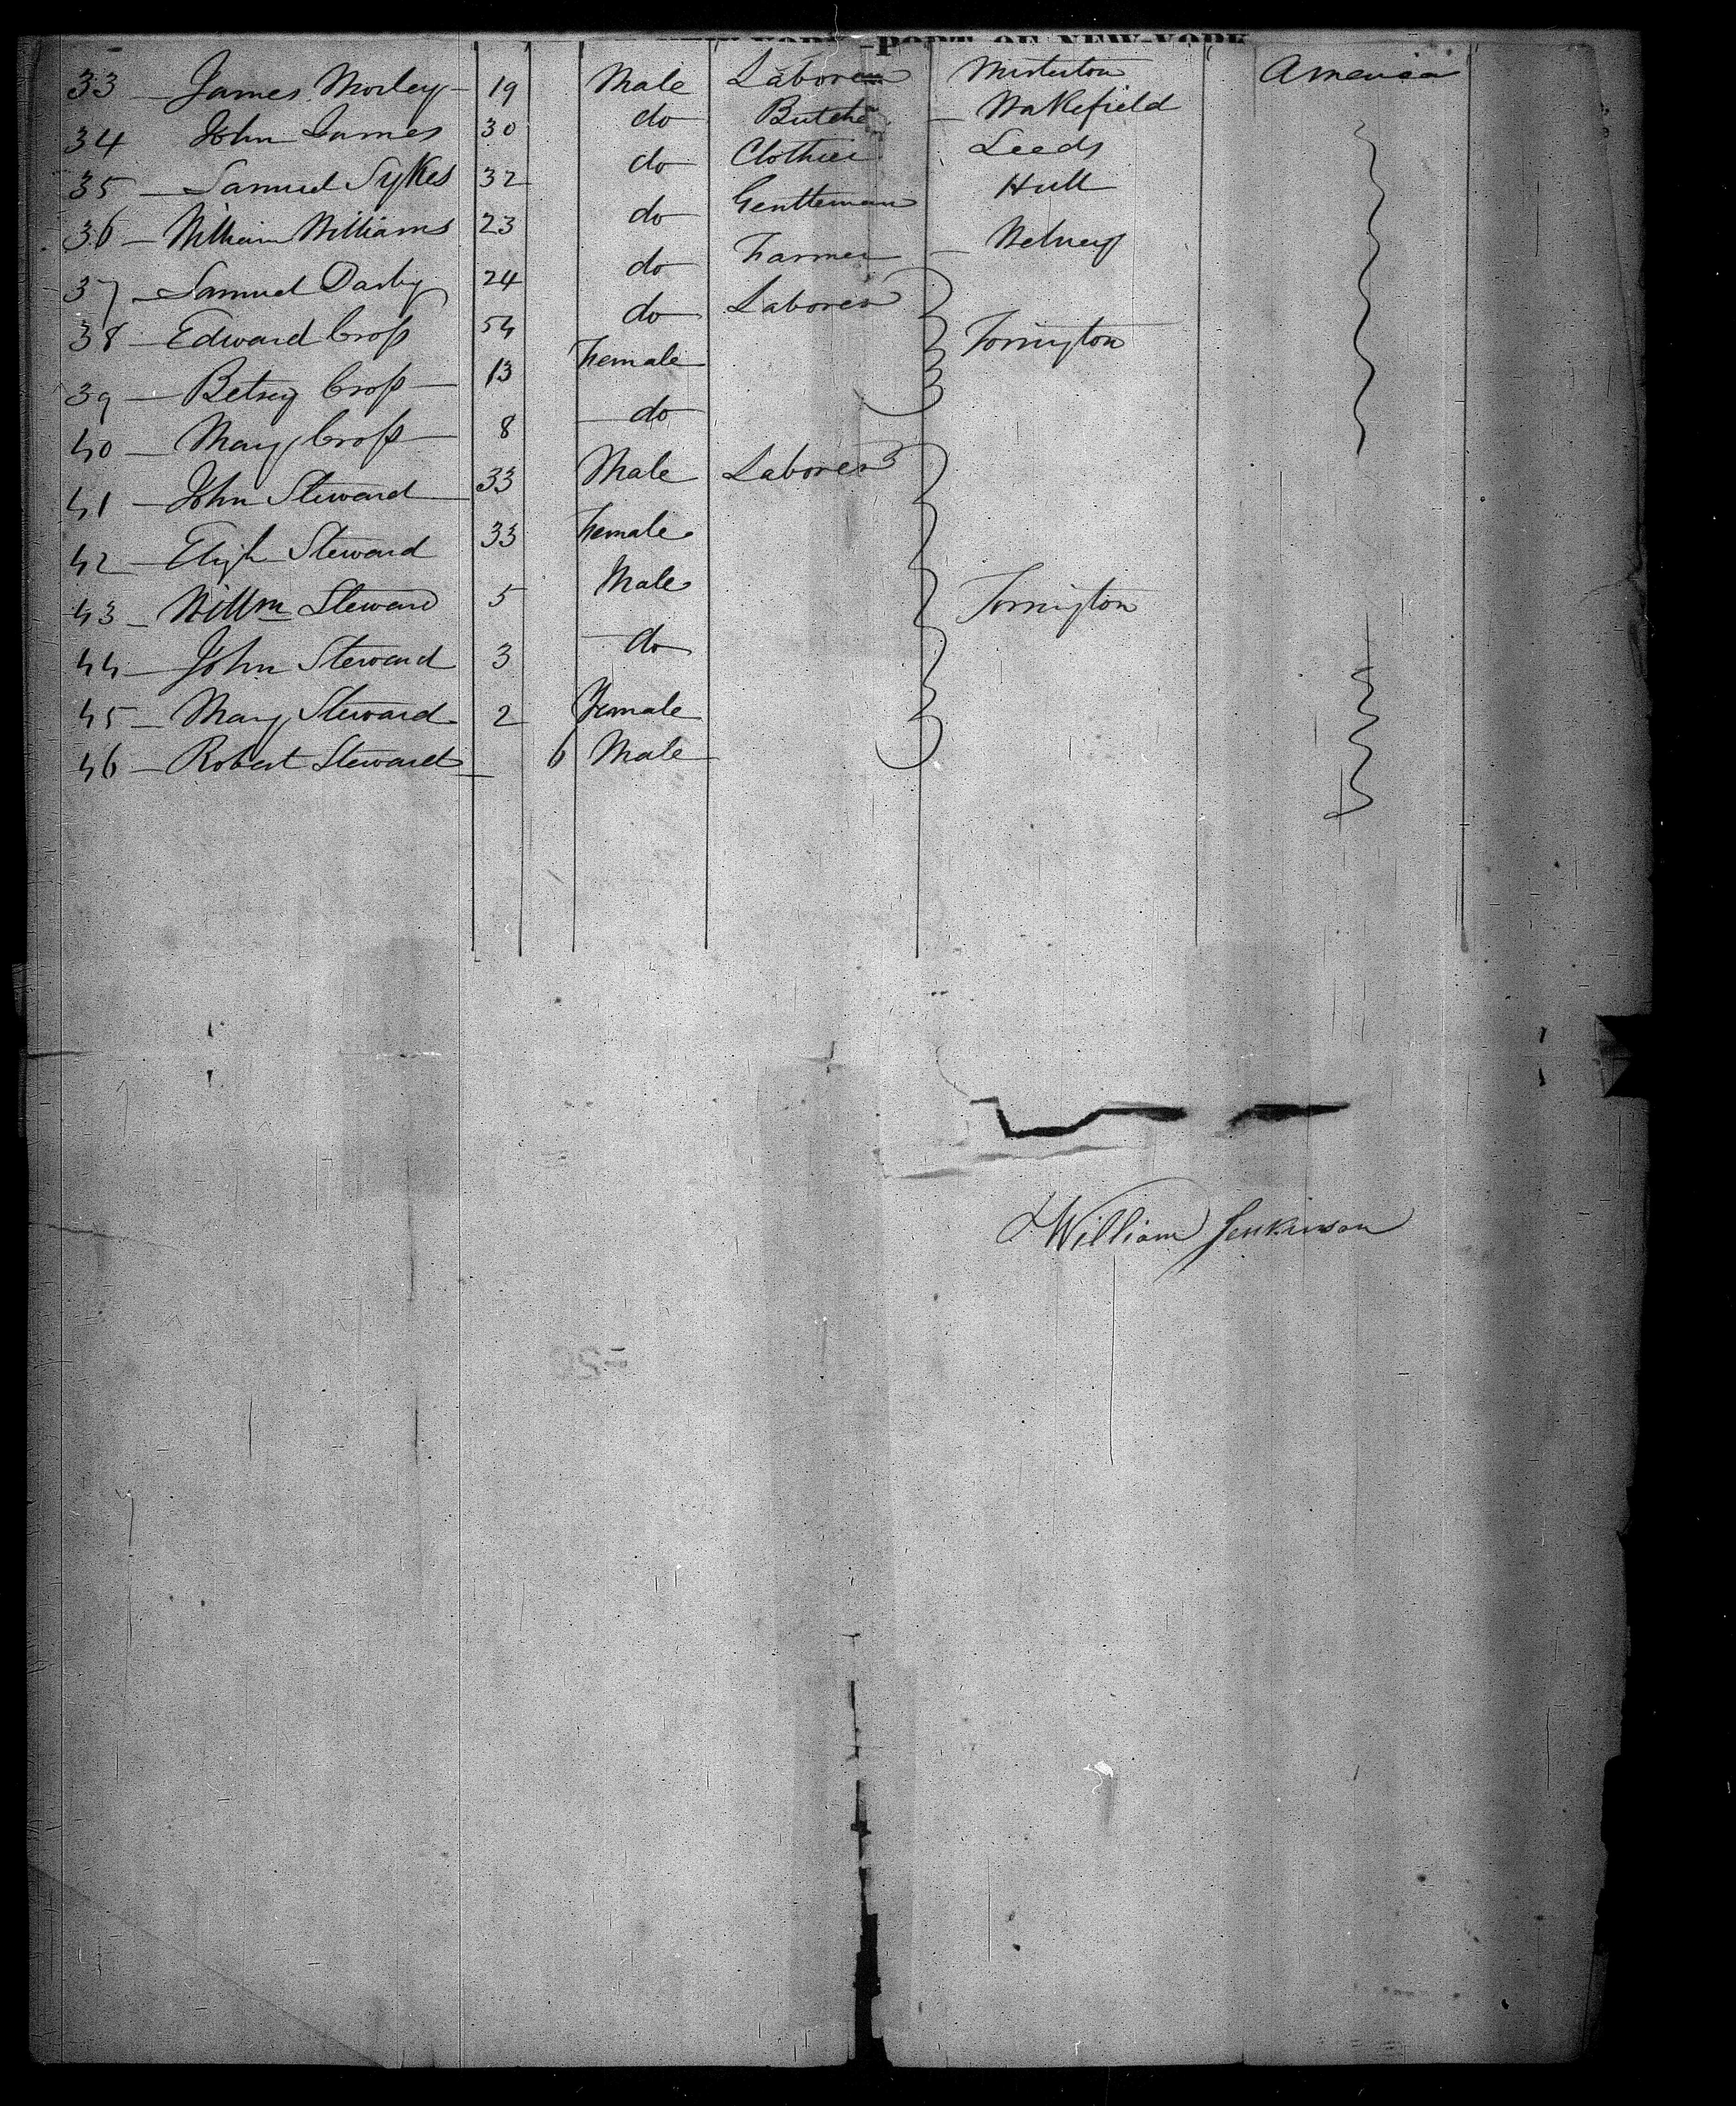 NEW-YORK-PORT OF NEW-YORK
33 — James Morley — 19 Male Laborer Misterton America
34 John James 30 do Butcher — Wakefield
35 — Samuel Sykes 32 do Clothier Leeds
36 — William Williams 23 do Gentleman Hull
37 — Samuel Darby 24 do Farmer —
38 — Edward Cross 54 do Laborer Torrington
39 — Betsey Cross — 13 Female
40 — Mary Cross — 8 — do
41 — John Steward 33 Male Laborer
42 — Elizh Steward 33 Female
43 — Willm Steward 5 Male Torrington
44 — John Steward 3 — do
45 — Mary Steward 2 Female
46 — Robert Steward — 6 Male
William Jenkinson